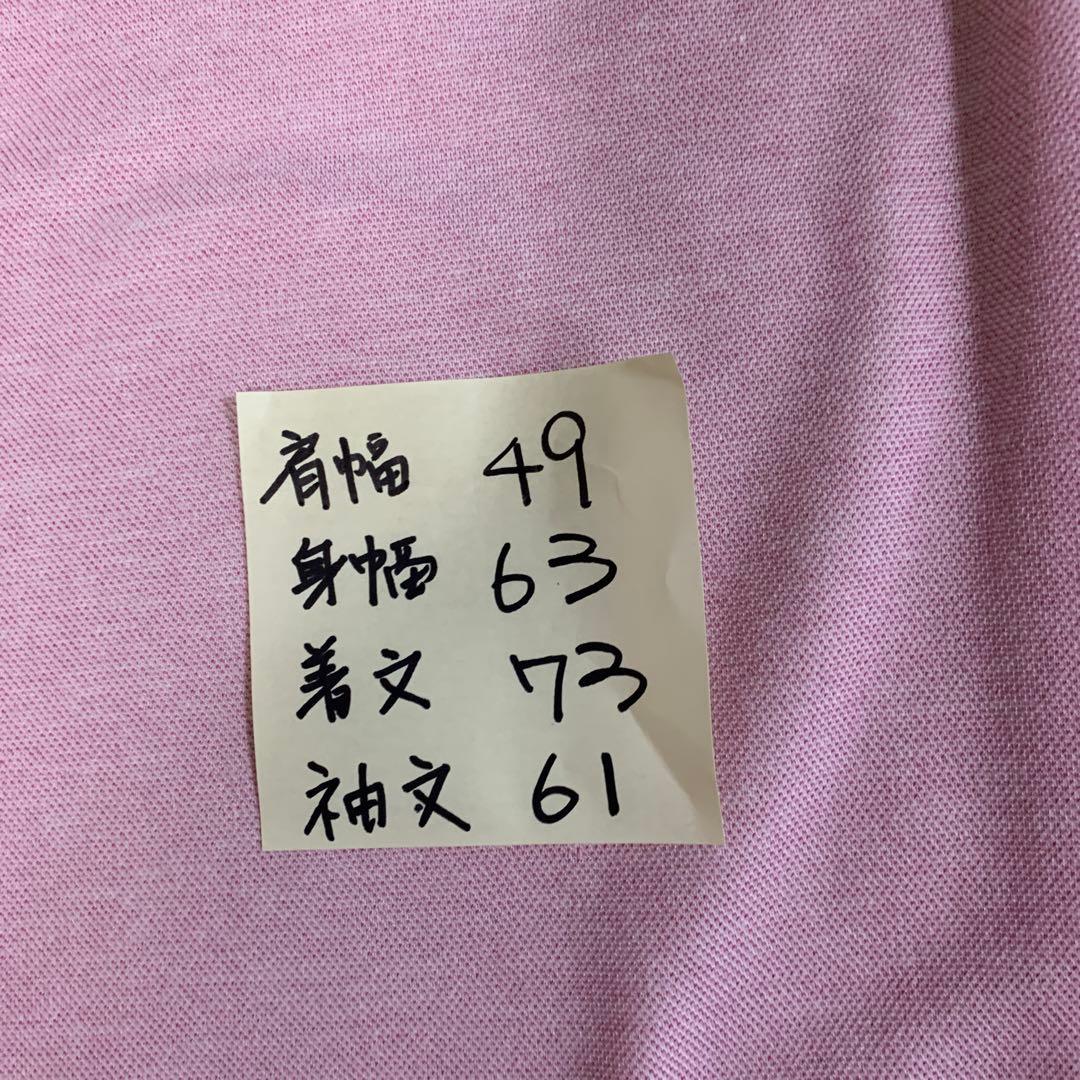 肩幅 49
身幅 63
着文 73
袖文 61